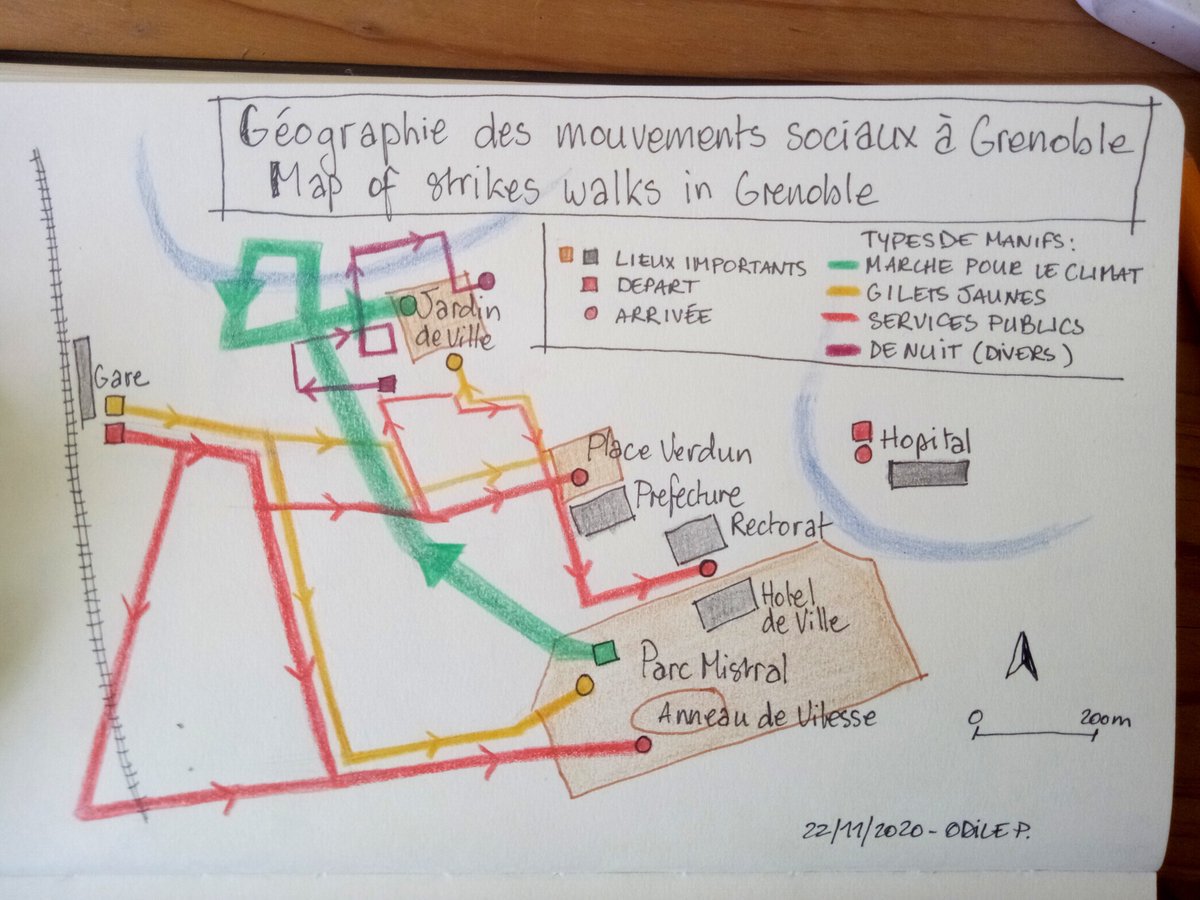 Géographie des mouvements sociaux à Grenoble
Map of strikes walks in Grenoble
LIEUX IMPORTANTS
DEPART
ARRIVÉE
TYPES DE MANIFS:
MARCHE POUR LE CLIMAT
GILETS JAUNES
SERVICES PUBLICS
DE NUIT (DIVERS)
Jardin
de Ville
Gare
Place Verdun
Prefecture
Rectorat
Hopital
Hotel
de Ville
Parc Mistral
Anneau de Vitesse
0 200m
22/11/2020 - ODILE P.